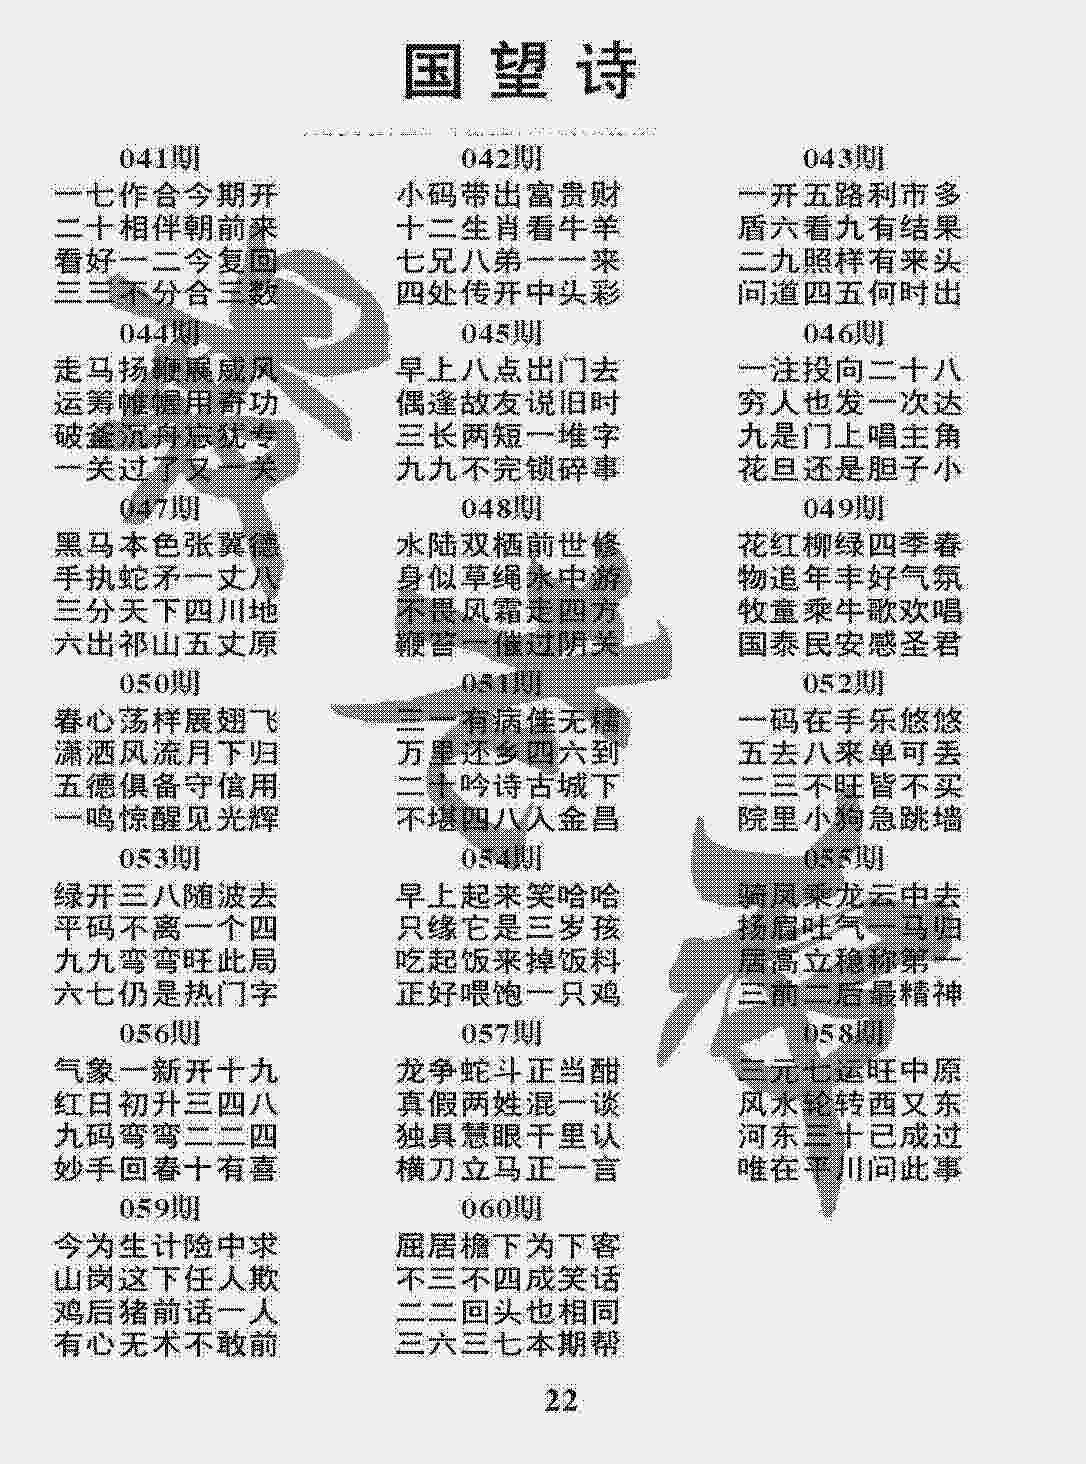 国望诗
041期
一七作合今期开
二十相伴朝前来
看好一二今复回
三三不分合三数
042期
小码带出富贵财
十二生肖看牛羊
七兄八弟一一来
四处传开中头彩
043期
一开五路利市多
盾六看九有结果
二九照样有来头
问道四五何时出
044期
走马扬鞭展威风
运筹帷幄用奇功
破釜沉舟忘犹专
一关过了又一关
045期
早上八点出门去
偶逢故友说旧时
三长两短一堆字
九九不完锁碎事
046期
一注投向二十八
穷人也发一次达
九是门上唱主角
花旦还是胆子小
047期
黑马本色张冀德
手执蛇矛一丈八
三分天下四川地
六出祁山五丈原
048期
水陆双栖前世修
身似草绳水中游
不畏风霜走四方
鞭笞一催过阴关
049期
花红柳绿四季春
物追年丰好气氛
牧童乘牛歌欢唱
国泰民安感圣君
050期
春心荡样展翅飞
潇洒风流月下归
五德俱备守信用
一鸣惊醒见光辉
051期
三一有病佳无
万里还乡四六到
二十吟诗古城下
不堪四八入金昌
052期
一码在手乐悠悠
五去八来单可丢
二三不旺皆不买
院里小狗急跳墙
053期
绿开三八随波去
平码不离一个四
九九弯弯旺此局
六七仍是热门字
054期
早上起来笑哈哈
只缘它是三岁孩
吃起饭来掉饭料
正好喂饱一只鸡
055期
骑凤乘龙云中去
扬眉吐气一马归
居高立稳称第一
三前二后最精神
056期
气象一新开十九
红日初升三四八
九码弯弯二二四
妙手回春十有喜
057期
龙争蛇斗正当酣
真假两姓混一谈
独具慧眼千里认
横刀立马正一言
058期
三元七运旺中原
风水轮转西又东
河东三十已成过
唯在平川问此事
059期
今为生计险中求
山岗这下任人欺
鸡后猪前话一人
有心无术不敢前
060期
屈居檐下为下客
不三不四成笑话
二二回头也相同
三六三七本期帮
22